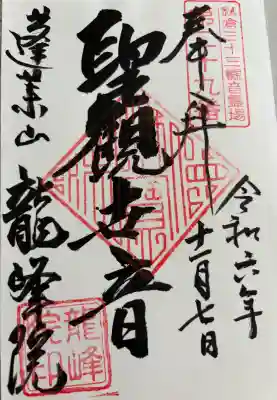 鎌倉三十三観音霊場
第二十九番
奉拝
令和六年
十一月七日
聖観世音
蓬莱山
龍峰院
龍峰
院印